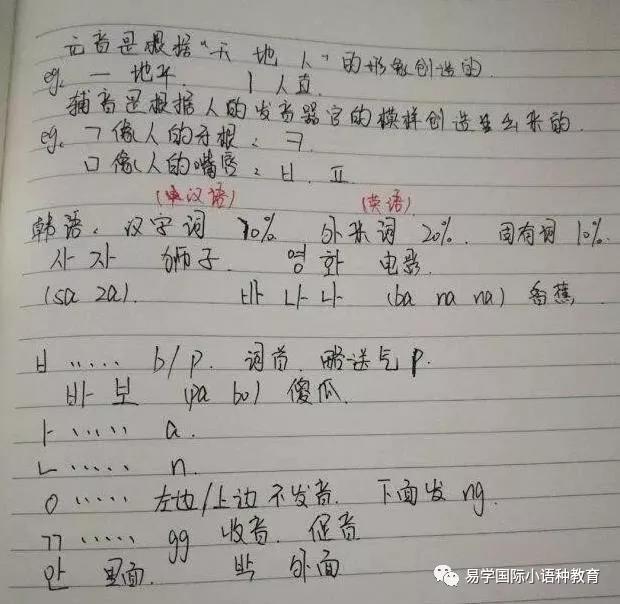 元音是根据“天 地 人”的形象创造的.
eg. 一 地平. ㅣ 人直.
辅音是根据人的发音器官的模样创造出来的.
eg. ㄱ 像人的牙根: ㅋ.
ㅁ 像人的嘴唇: ㅂ. ㅍ
(汉语) (英语)
韩语. 汉字词 70% 外来词 20%. 固有词 10%.
사 자 狮子. 영 화 电影.
(sa za). 바 나 나 (ba na na) 香蕉
ㅂ ····· b/p. 词首. 略送气 p.
바 보 (pa bo) 傻瓜.
ㅏ ····· a.
ㄴ ····· n.
ㅇ ····· 左边/上边 不发音. 下面发 ng.
ㄲ ····· gg 收音. 促音
안 里面. 밖 外面
易学国际小语种教育